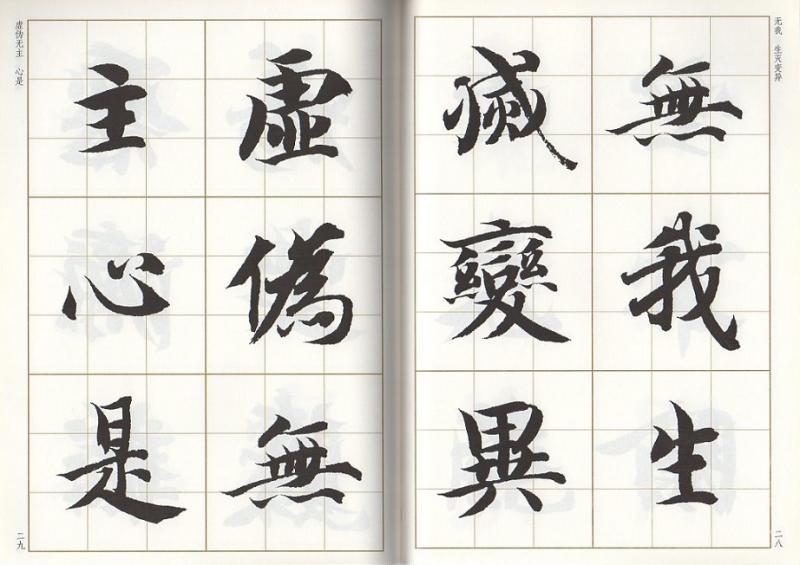 无我　生灭变异
無我生
滅變異
二八
虚伪无主　心是
虛偽無
主心是
二九